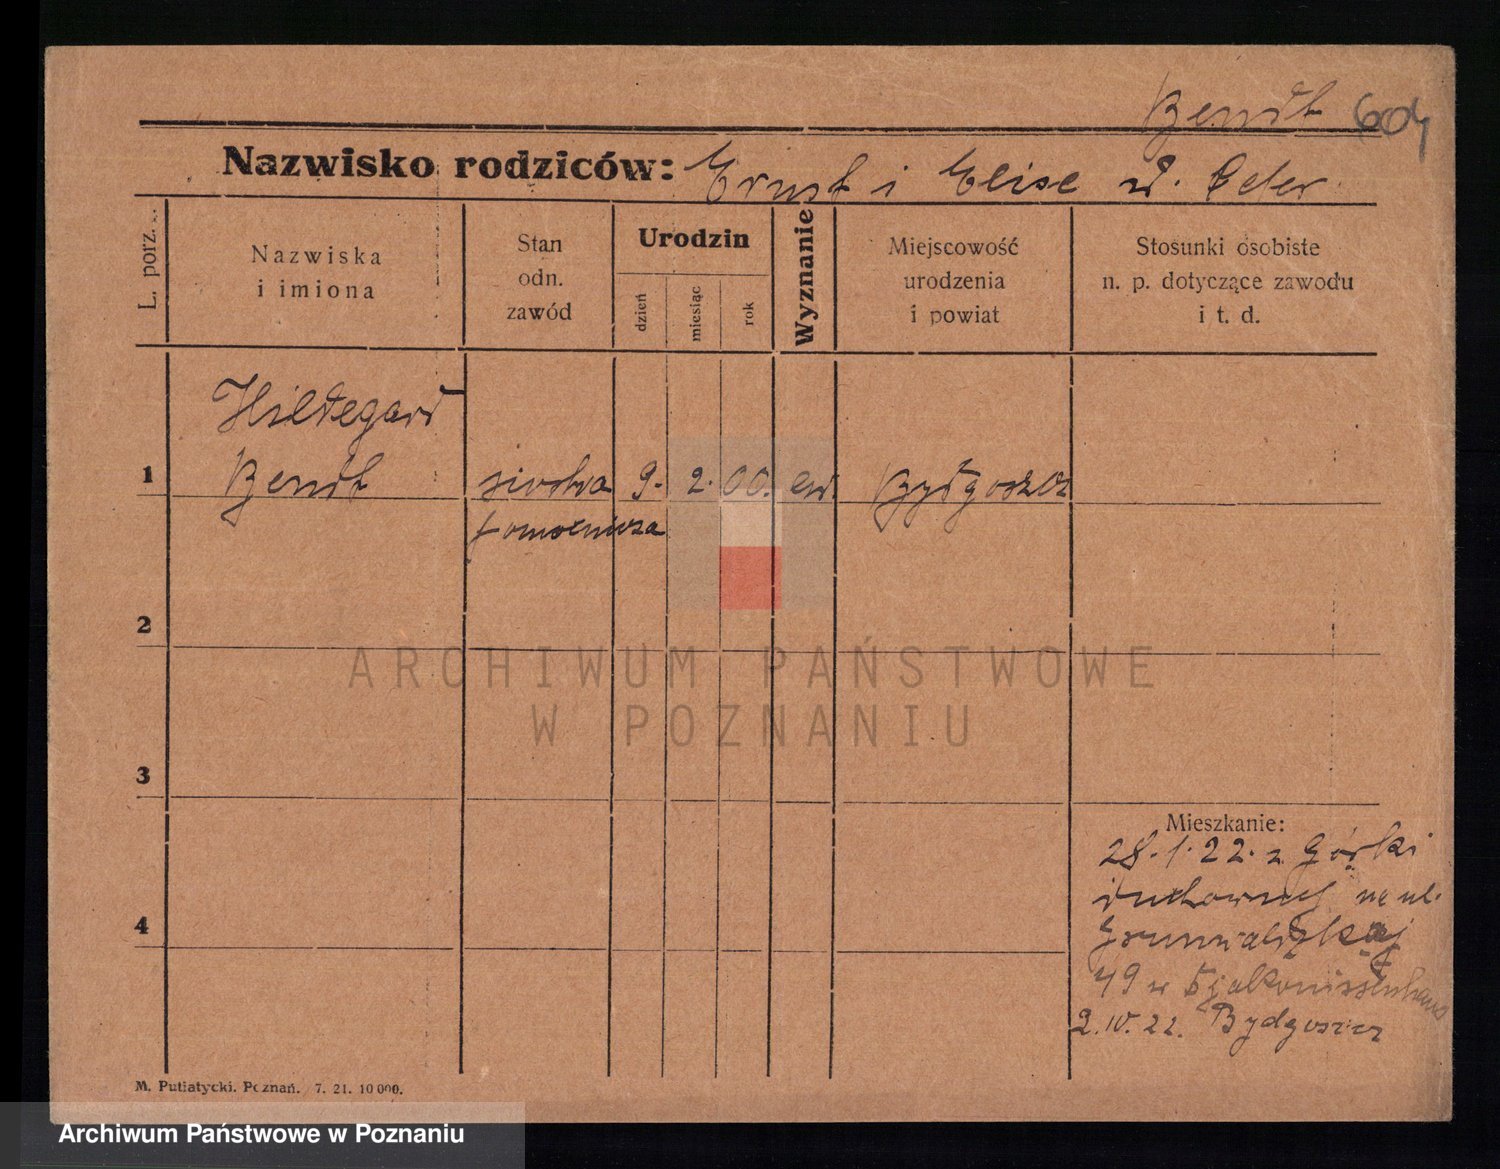 Bendt 604
Nazwisko rodziców: Ernst i Elise d. Eder
L. porz.
Nazwiska
i imiona
Stan
odn.
zawód
Urodzin
dzień
miesiąc
rok
Wyznanie
Miejscowość
urodzenia
i powiat
Stosunki osobiste
n. p. dotyczące zawodu
i t. d.
Hildegard
1 Bendt siostra 9. 2. 00. ew Bydgoszcz
pomocnicza
2
3
4
Mieszkanie:
28.1.22. z Górki
duchownej na ul.
Grunwaldzkiej
49 w Djakonissenhaus
2.IV.22. Bydgoszcz
M. Putiatycki. Poznań. 7. 21. 10 000.
ARCHIWUM PAŃSTWOWE
W POZNANIU
Archiwum Państwowe w Poznaniu